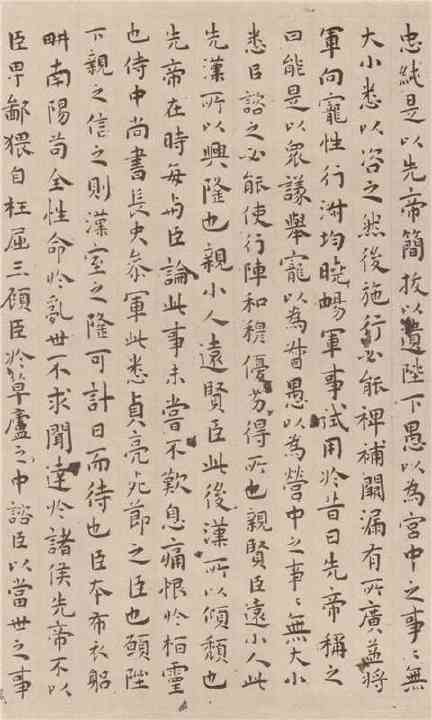 忠純是以先帝簡拔以遺陛下愚以為宮中之事〻無
大小悉以咨之然後施行必能裨補闕漏有所廣益將
軍向寵性行淑均曉暢軍事試用於昔日先帝稱之
曰能是以衆議舉寵以為督愚以為營中之事〻無大小
悉臣諮之必能使行陣和穆優劣得所也親賢臣遠小人此
先漢所以興隆也親小人遠賢臣此後漢所以傾頹也
先帝在時每与臣論此事未嘗不歎息痛恨於桓靈
也侍中尚書長史叅軍此悉貞亮死節之臣也願陛
下親之信之則漢室之隆可計日而待也臣本布衣躬
畊南陽苟全性命於亂世不求聞達於諸侯先帝不以
臣卑鄙猥自枉屈三顧臣於草廬之中諮臣以當世之事